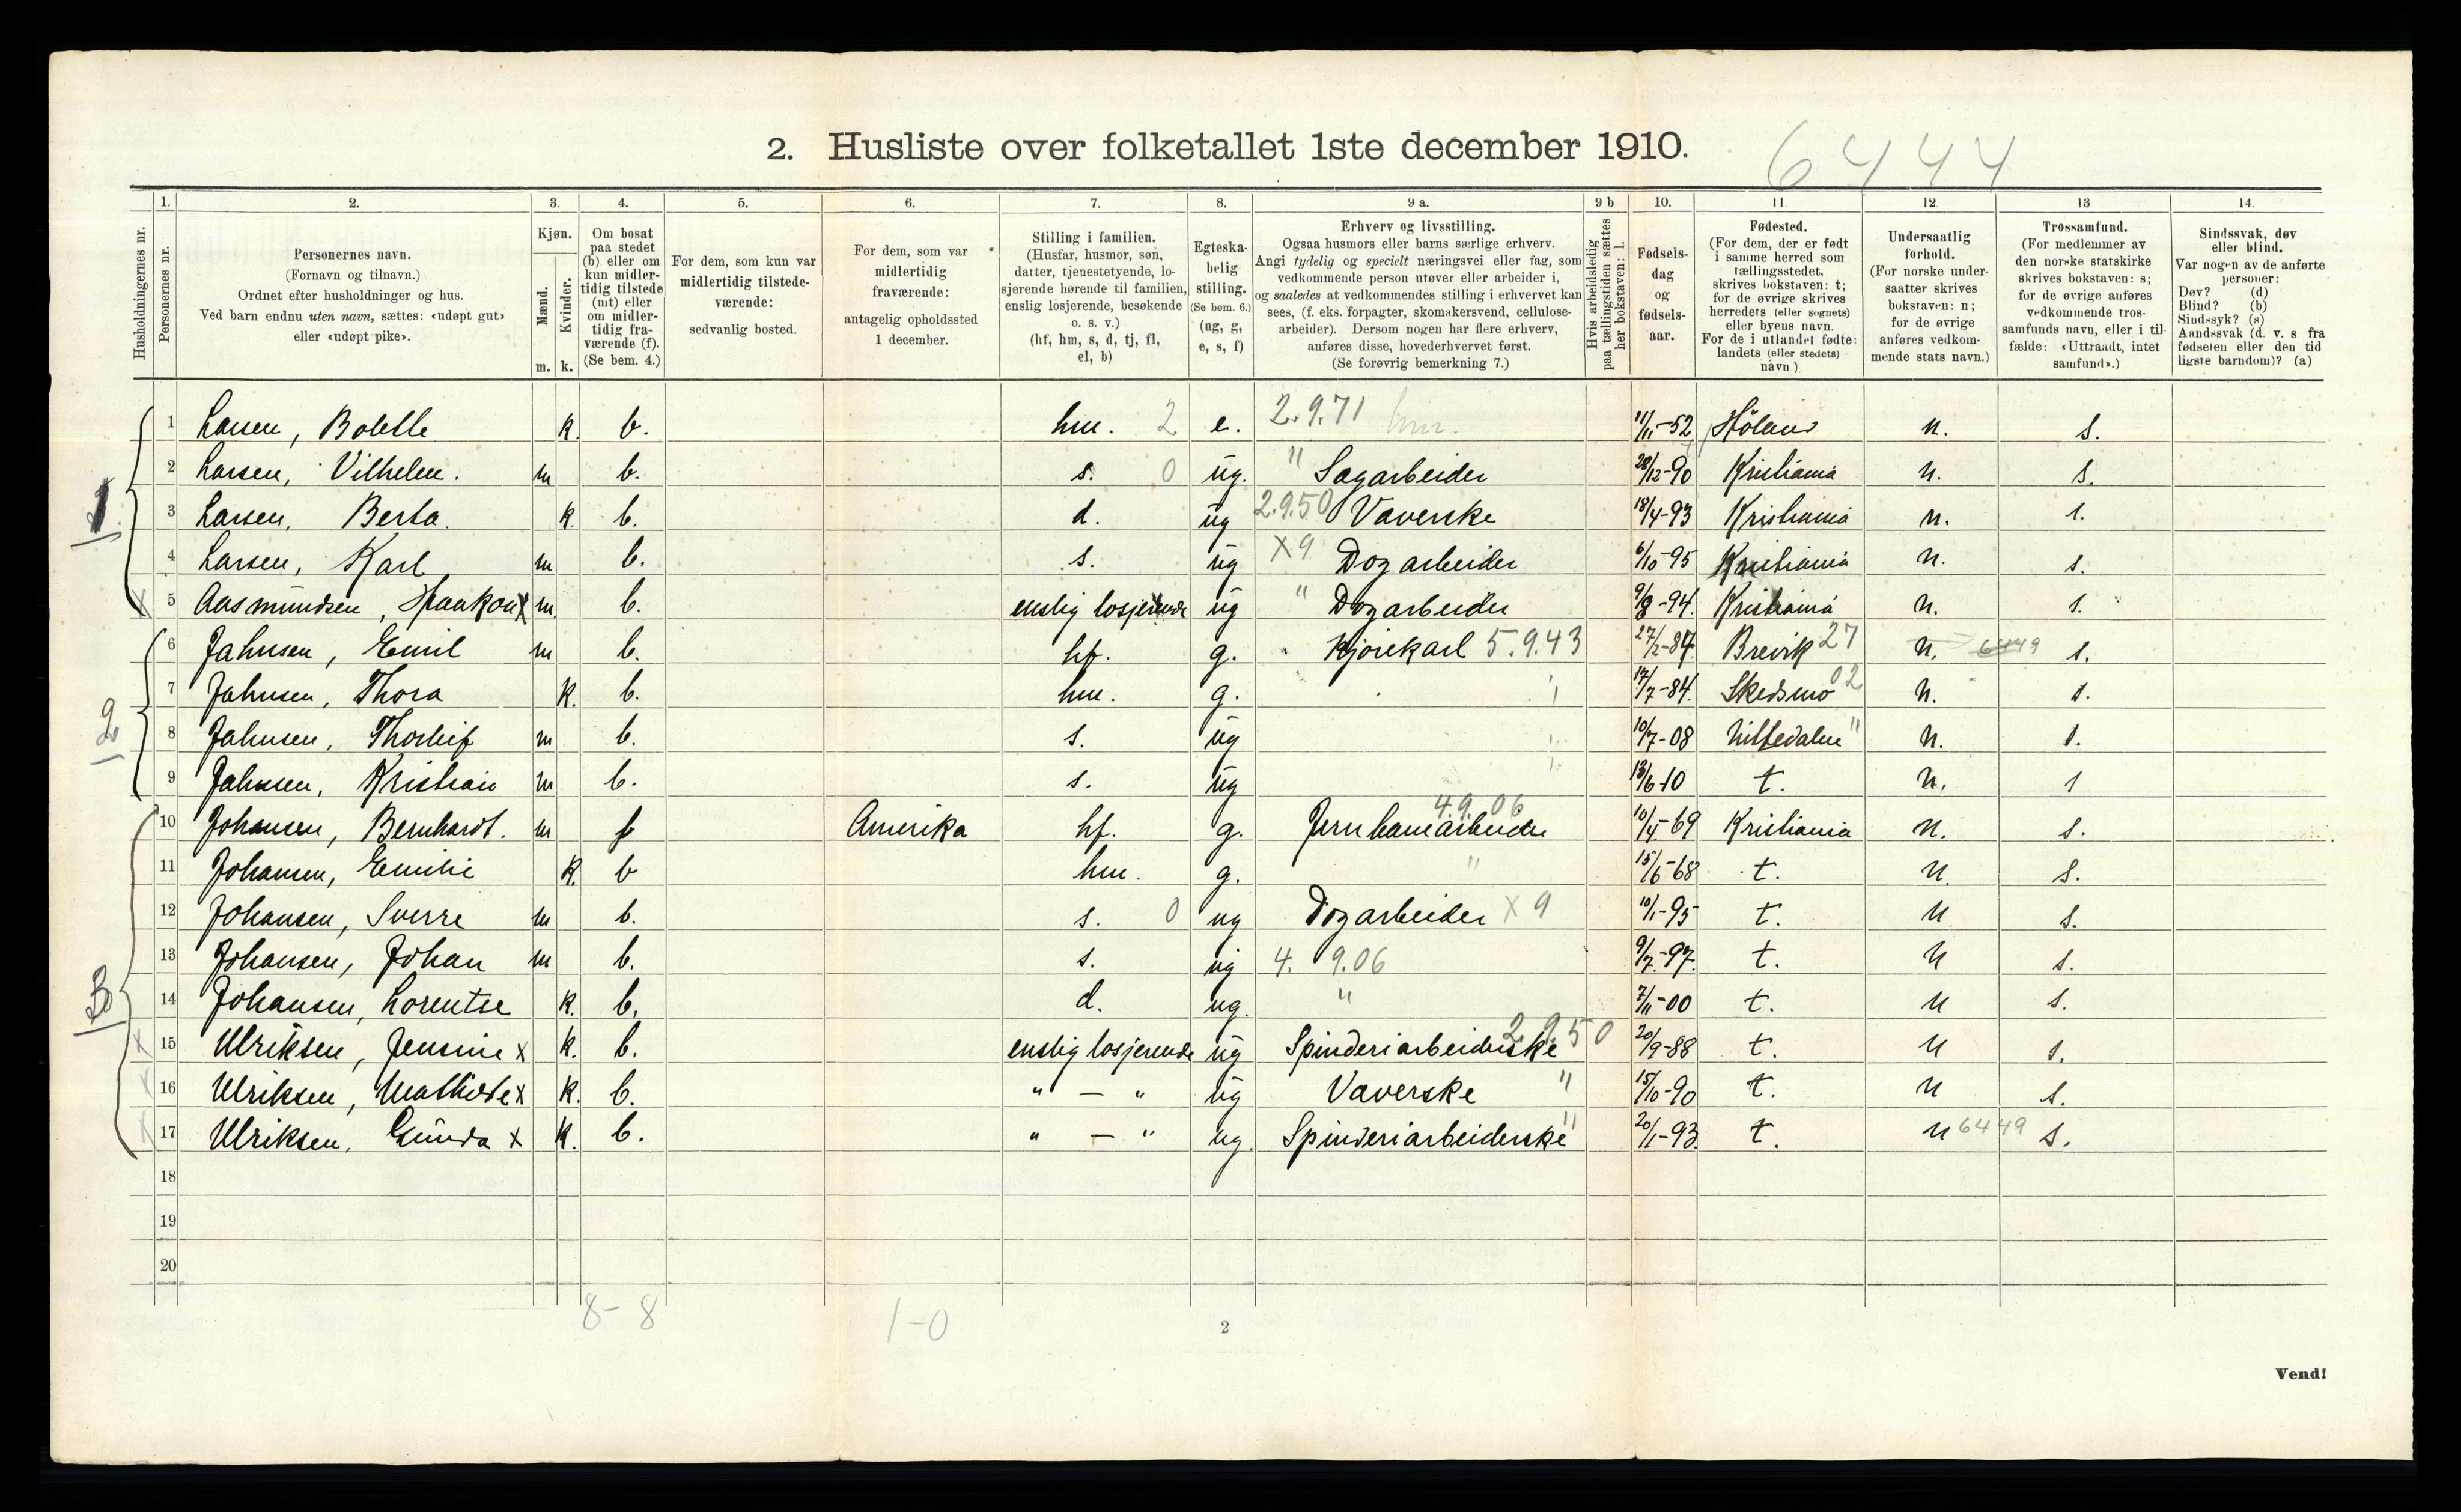 2. Husliste over folketallet 1ste december 1910.
6444
1. 2. 3. 4. 5. 6. 7. 8. 9 a. 9 b 10. 11. 12. 13 14.
Husholdningernes nr.
Personernes nr.
Personernes navn.
(Fornavn og tilnavn.)
Ordnet efter husholdninger og hus.
Ved barn endnu uten navn, sættes: «udøpt gut»
eller «udøpt pike».
Kjøn.
Mænd.
Kvinder.
m. k.
Om bosat
paa stedet
(b) eller om
kun midler-
tidig tilstede
(mt) eller
om midler-
tidig fra-
værende (f).
(Se bem. 4.)
For dem, som kun var
midlertidig tilstede-
værende:
sedvanlig bosted.
For dem, som var
midlertidig
fraværende:
antagelig opholdssted
1 december.
Stilling i familien.
(Husfar, husmor, søn,
datter, tjenestetyende, lo-
sjerende hørende til familien,
enslig losjerende, besøkende
o. s. v.)
(hf, hm, s, d, tj, fl,
el, b)
Egteska-
belig
stilling.
(Se bem. 6.)
(ug, g,
e, s, f)
Erhverv og livsstilling.
Ogsaa husmors eller barns særlige erhverv.
Angi tydelig og specielt næringsvei eller fag, som
vedkommende person utøver eller arbeider i,
og saaledes at vedkommendes stilling i erhvervet kan
sees, (f. eks. forpagter, skomakersvend, cellulose-
arbeider). Dersom nogen har flere erhverv,
anføres disse, hovederhvervet først.
(Se forøvrig bemerkning 7.)
Hvis arbeidsledig
paa tællingstiden sættes
her bokstaven: l.
Fødsels-
dag
og
fødsels-
aar.
Fødested.
(For dem, der er født
i samme herred som
tællingsstedet,
skrives bokstaven: t;
for de øvrige skrives
herredets (eller sognets)
eller byens navn.
For de i utlandet fødte:
landets (eller stedets)
navn.)
Undersaatlig
forhold.
(For norske under-
saatter skrives
bokstaven: n;
for de øvrige
anføres vedkom-
mende stats navn.)
Trossamfund.
(For medlemmer av
den norske statskirke
skrives bokstaven: s;
for de øvrige anføres
vedkommende tros-
samfunds navn, eller i til-
fælde: «Uttraadt, intet
samfund».)
Sindssvak, døv
eller blind.
Var nogen av de anførte
personer:
Døv? (d)
Blind? (b)
Sindssyk? (s)
Aandssvak (d. v. s. fra
fødselen eller den tid
ligste barndom)? (a)
1 Larsen, Bolette k. b. hm. 2 e. 2.9.71 hm. 11/11-52 Höland n. s.
2 Larsen, Vilhelm. m b. s. 0 ug. " Sagarbeider 28/12-90 Kristiania n. s.
1
3 Larsen, Berta. k. b. d. ug 2.9.50 Vaverske 18/4-93 Kristiania n. s.
4 Larsen, Karl m b. s. ug X9 Dogarbeider 6/10-95 Kristiania n. s.
5 Aasmundsen, Haakon x m. b. enslig losjerende ug " Dogarbeider 9/8-94. Kristiania n. s.
6 Jahnsen, Emil m b. hf. g. Kjörekarl 5.9.43 27/2-84 Brevik 27 n. 6449 s.
7 Jahnsen, Thora k. b. hm. g. " 17/7-84. Skedsmo 02 n. s.
2
8 Jahnsen, Thorleif m b. s. ug " 10/7-08 Nittedalen " n. s.
9 Jahnsen, Kristian m b. s. ug " 13/6-10 t. n. s
10 Johansen, Bernhardt. m f Amerika hf. g. Jernbanearbeider 4.9.06 10/4-69 Kristiania n. s.
11 Johansen, Emilie k. b hm. g. " 15/6-68 t. n. s.
12 Johansen, Sverre m b. s. 0 ug Dogarbeider X 9 10/1-95 t. n s.
13 Johansen, Johan m b. s. ug 4. 9.06 9/7-97. t. n s.
3
14 Johansen, Lorentse k. b. d. ug. " 7/11-00 t. n s.
15 Ulriksen, Jensine x k. b. enslig losjerende ug Spinderiarbeiderske 2.9.50 20/9-88 t. n s.
16 Ulriksen, Mathilde x k. b. " — " ug Vaverske " 15/10-90 t. n s.
17 Ulriksen, Gunda x k. b. " — " ug. Spinderiarbeiderske " 20/1-93. t. n 6449 s.
18
19
20
8-8 1-0
2
Vend!